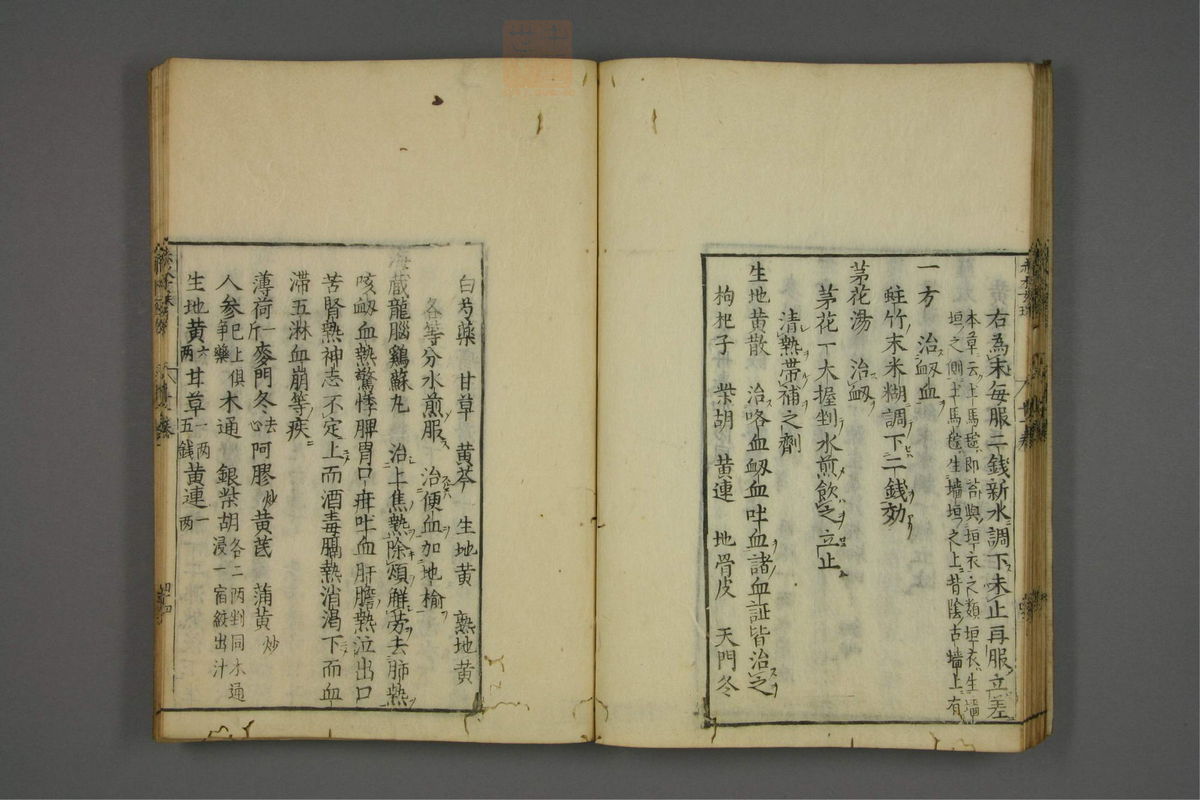 右為末毎服二銭新水調下未止再服立差
本草云土馬鬃即苔與垣衣之類垣衣生墻
垣之側土馬鬃生墻垣之上昔陰古墻上有
一方　治衂血
蛀竹末米糊調下二銭効
茅花湯　治衂
茅花一大握剉水煎飲之立止
清熱帯補之劑
生地黄散　治咯血衂血吐血諸血証皆治之
枸杞子　柴胡　黄連　地骨皮　天門冬
白芍薬　甘草　黄芩　生地黄　熟地黄
各等分水煎服　治便血加地榆
海蔵龍腦鷄蘇丸　治上焦熱除煩解労去肺熱
咳衂血熱驚悸脾胃口疳吐血肝膽熱泣出口
苦腎熱神志不定上而酒毒膈熱消渇下而血
滞五淋血崩等疾
薄荷一斤麥門冬去心阿膠炒黄芪　蒲黄炒
人参巳上俱木通　銀柴胡各二両剉同木通浸一宿絞出汁
生地黄六両甘草一両五銭黄連一両